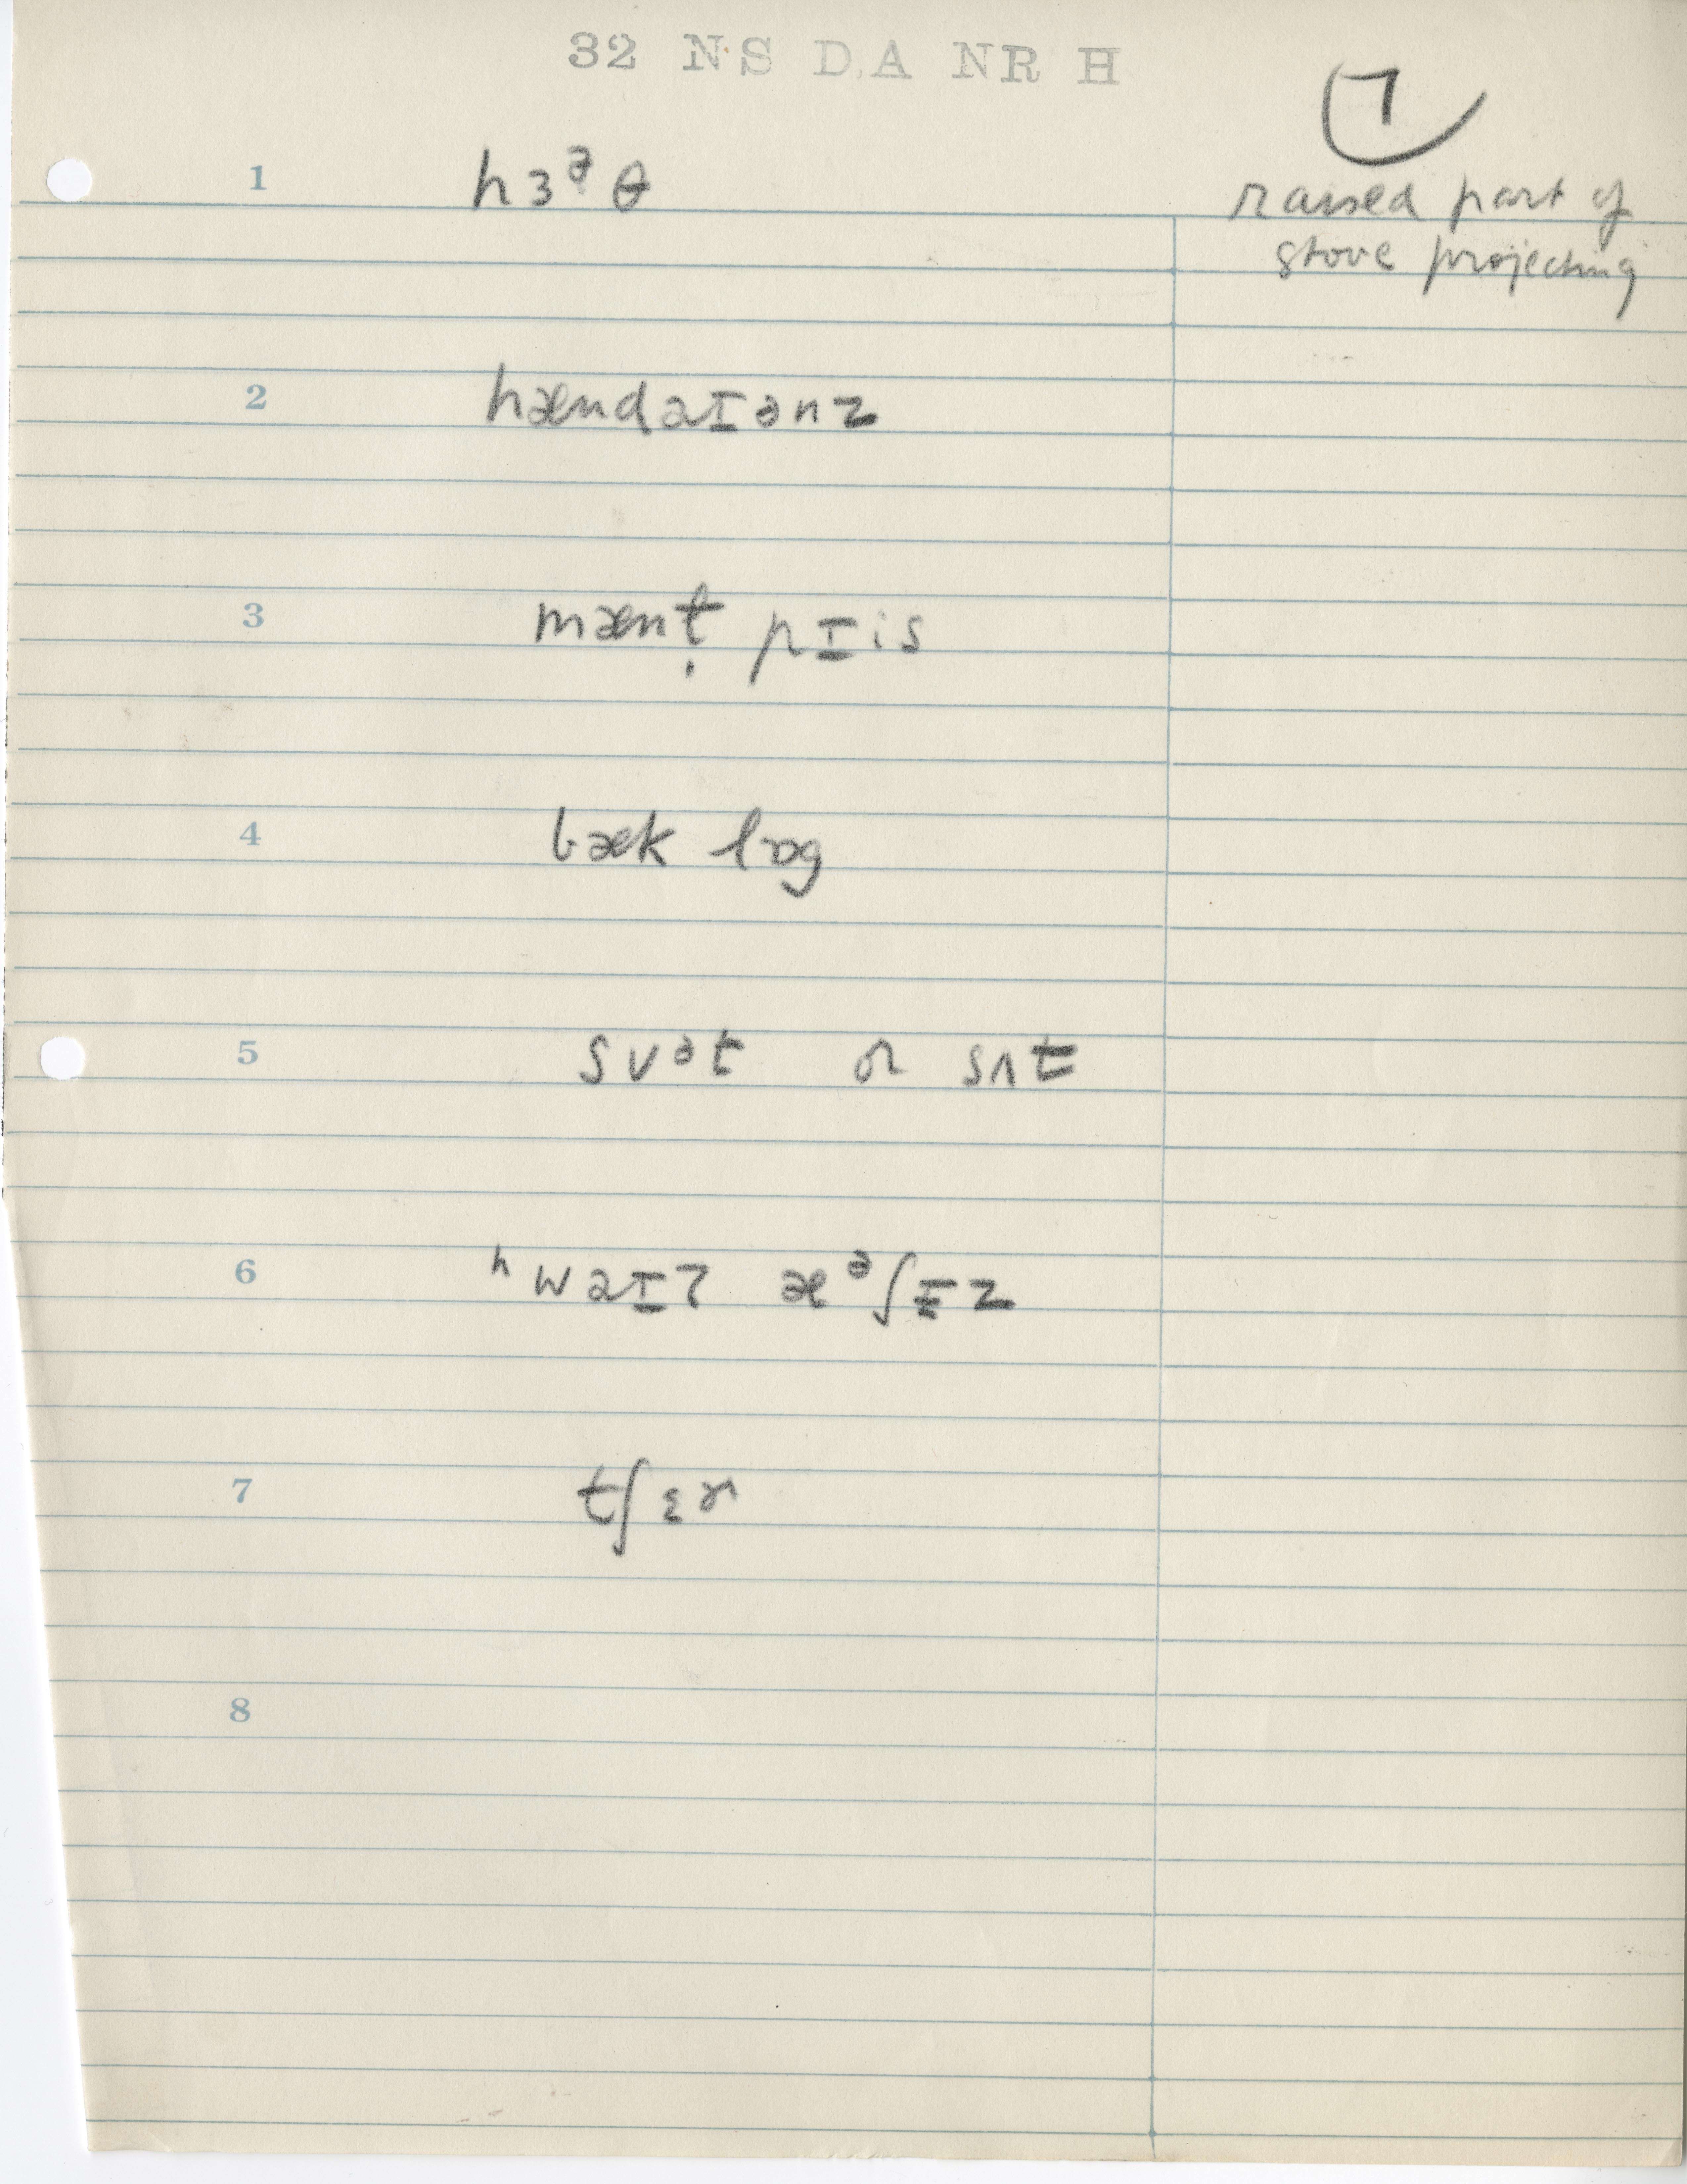 32 NS DA NR H
7
1 hɜᵊθ
raised part of
stove projecting
2 hændaɪənz
3 mænṭ pɪis
4 bæk lɒg
5 sʊᵊt or sʌt
6 ʰwaɪʔ æᵊʃɪz
7 tʃɛɚ
8